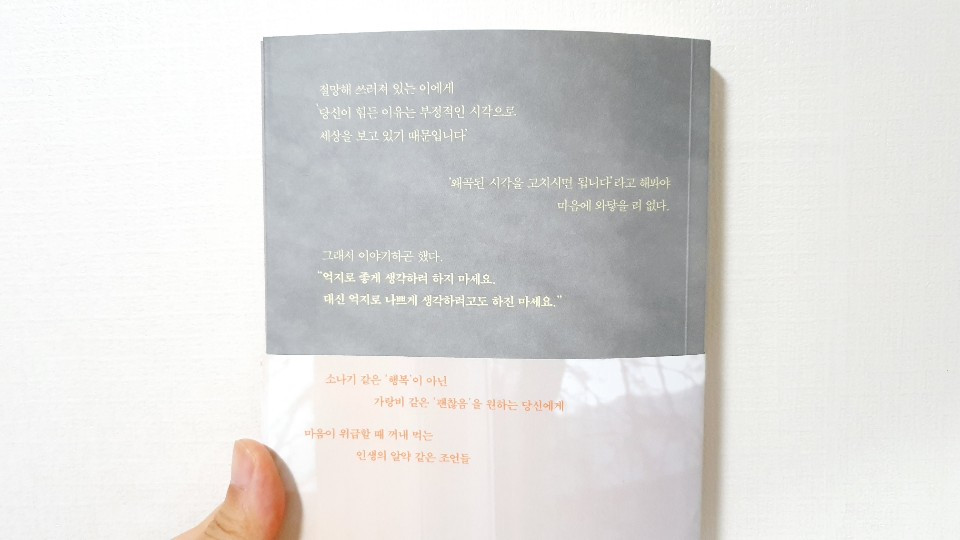 절망해 쓰러져 있는 이에게
'당신이 힘든 이유는 부정적인 시각으로
세상을 보고 있기 때문입니다'
'왜곡된 시각을 고치시면 됩니다'라고 해봐야
마음에 와닿을 리 없다.
그래서 이야기하곤 했다.
"억지로 좋게 생각하려 하지 마세요.
대신 억지로 나쁘게 생각하려고도 하진 마세요."
소나기 같은 '행복'이 아닌
가랑비 같은 '괜찮음'을 원하는 당신에게
마음이 위급할 때 꺼내 먹는
인생의 알약 같은 조언들